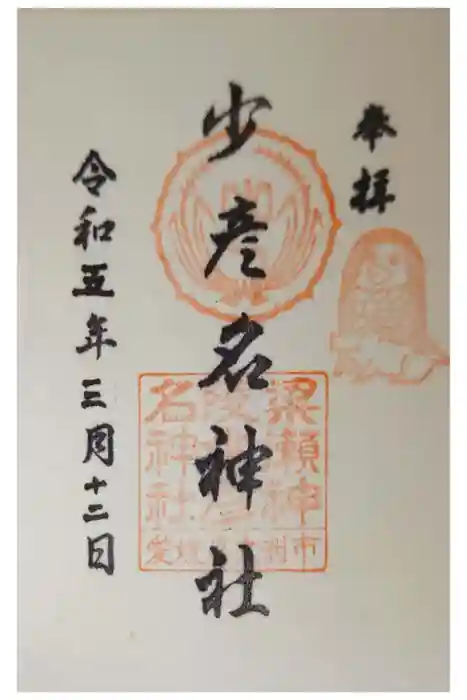 奉拝
少彦名神社
令和五年三月十二日
梁瀬神
名神社